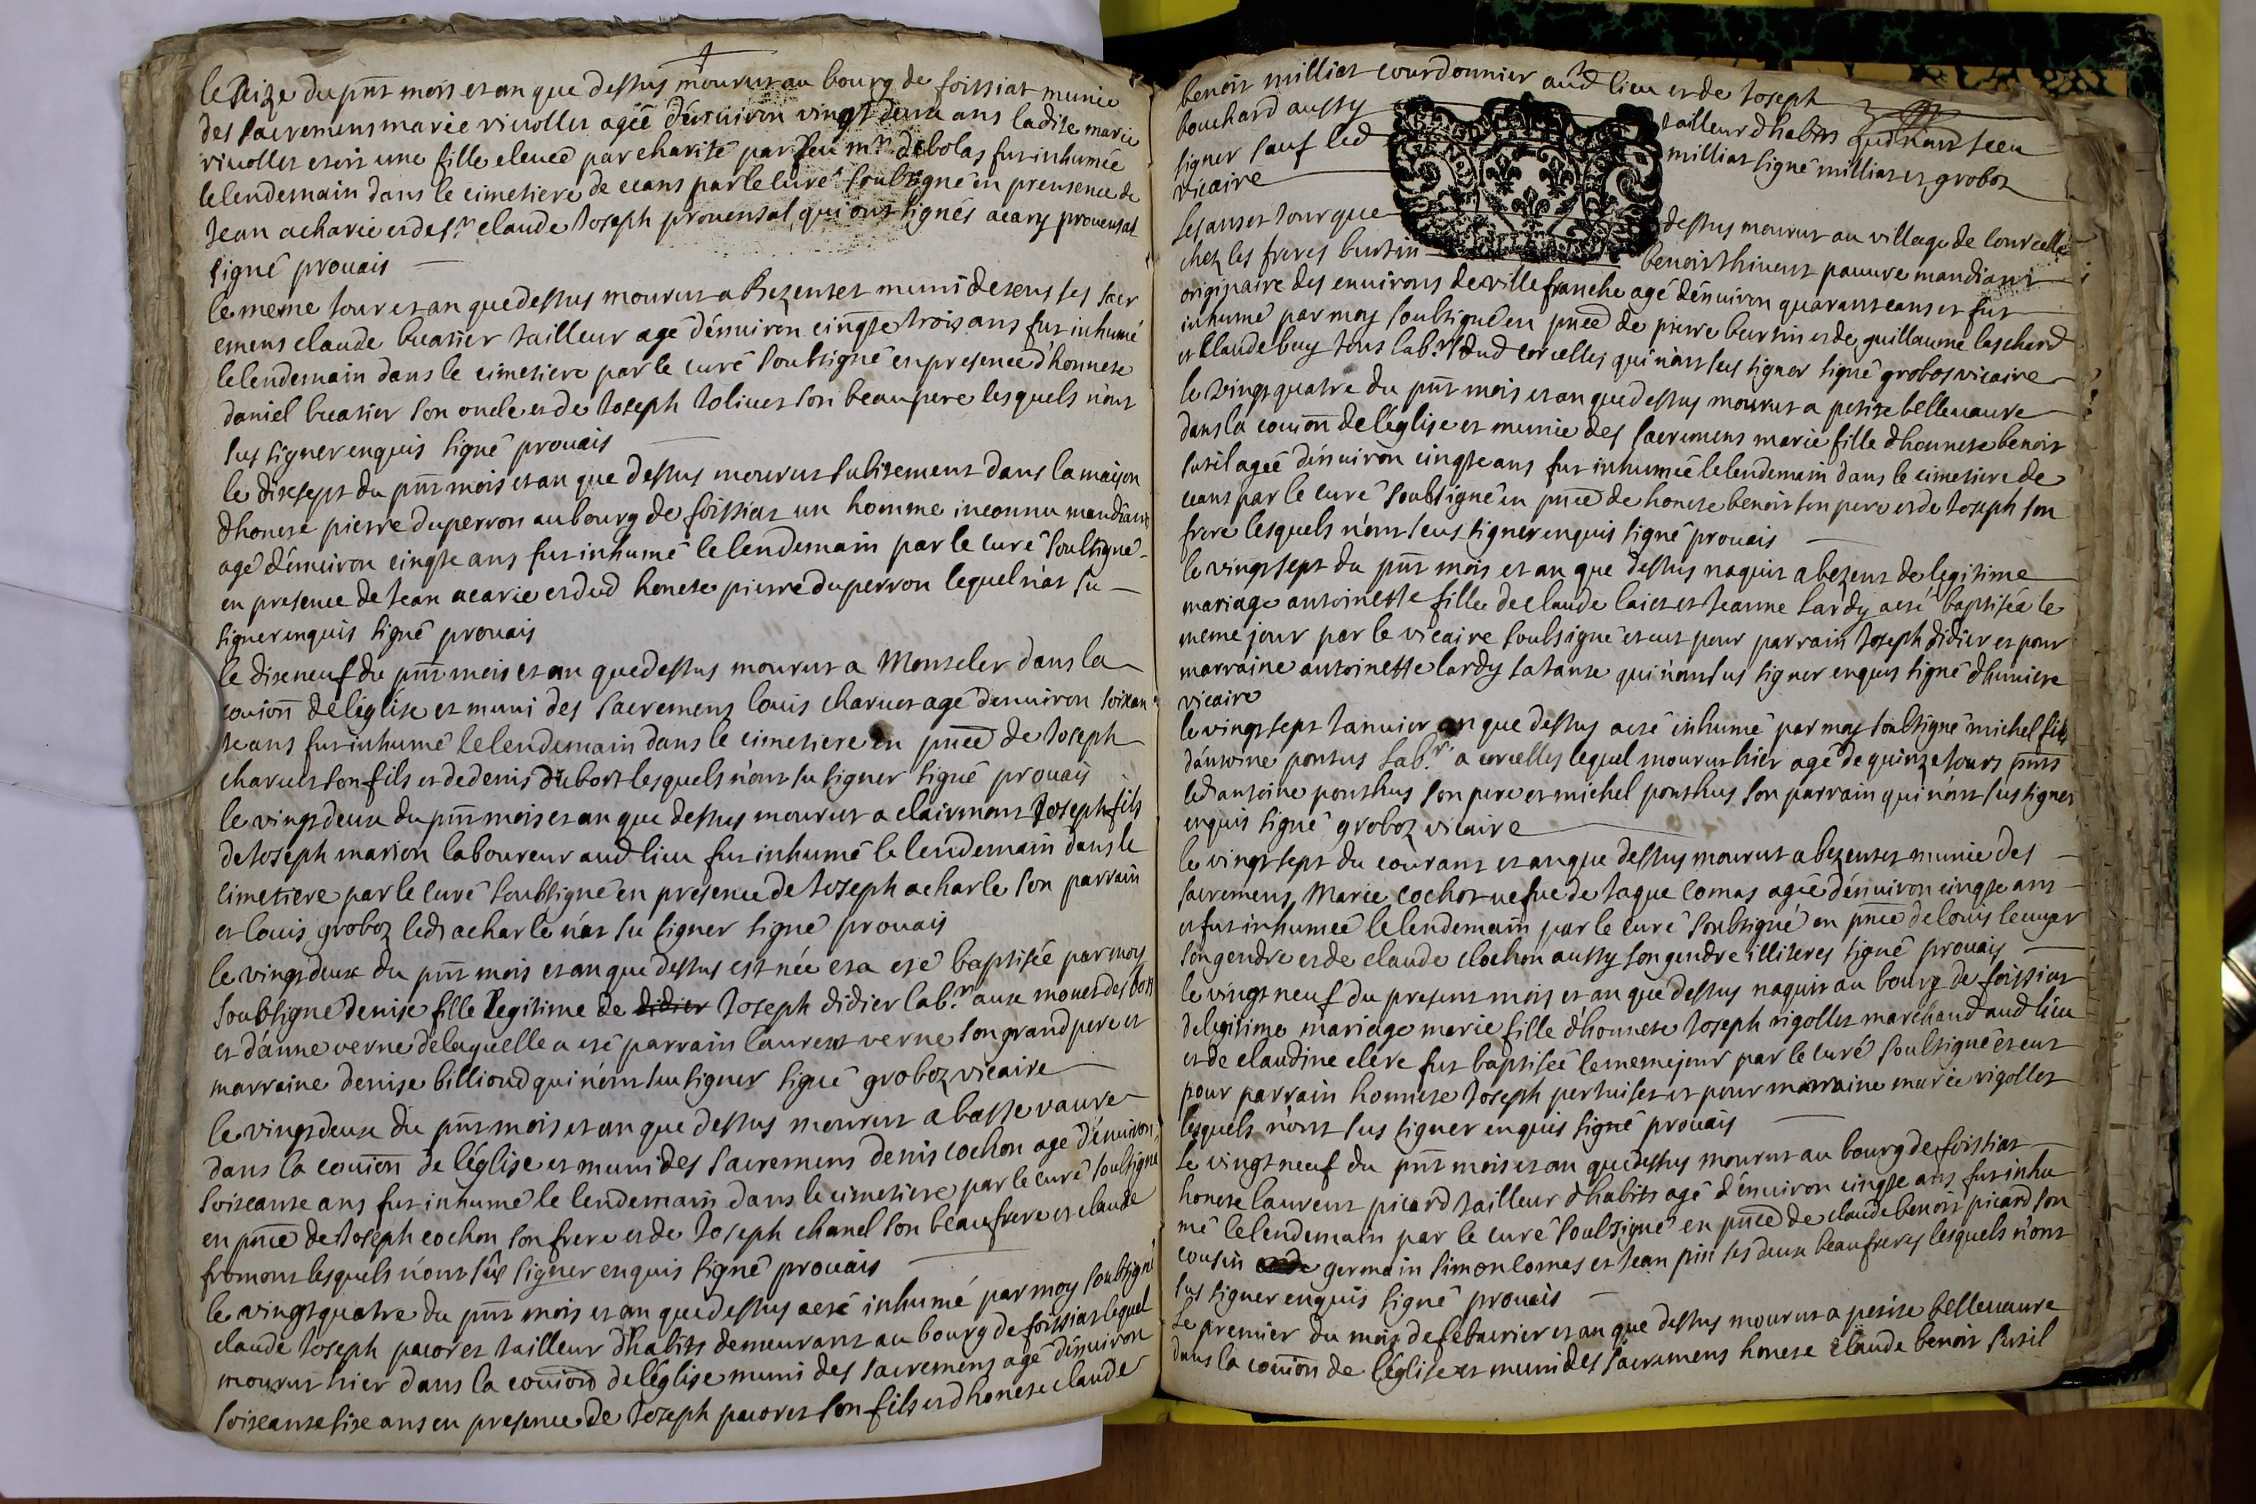 le seize du pnt mois et an que dessus mourut au bourg de foissiat munie
des sacremens marie vivollet agée d'environ vingt deux ans ladite marie
vivollet etoit une fille elevée par charité par feu mr. debolas fut inhumée
le lendemain dans le cimetiere de ceans par le curé soubsigné en preusence de
Jean acharie et de sr. claude Joseph prouensal qui ont signés acary prouensal
signé prouais
le meme jour et an que dessus mourut a Bezentet muni de tous ses sacr
emens claude buatier tailleur agé d'environ cinqte trois ans fut inhumé
le lendemain dans le cimetiere par le curé soubsigné en presence d'honnete
daniel buatier son oncle et de Joseph Jolivet son beaupere lesquels n'ont
sus signer enquis signé prouais
le dixsept du pnt mois et an que dessus mourut subitement dans la maison
d'honete pierre duperron au bourg de foissiat un homme inconnu mandiant
agé d'environ cinqte ans fut inhumé le lendemain par le curé soubsigné
en presence de Jean acarie et dud honete pierre duperron lequel n'at su
signer enquis signé prouais
le dixneuf du pnt mois et an que dessus mourut a Monteler dans la
couion de l'église et muni des sacremens louis charuet agé d'environ soixan
te ans fut inhumé le lendemain dans le cimetiere en pnce de Joseph
charuet son fils et de denis dubost lesquels n'ont su signer signé prouais
le vingtdeux du pnt mois et an que dessus mourut a clairmont Joseph fils
de Joseph marion laboureur aud. lieu fut inhumé le lendemain dans le
cimetiere par le curé soubsigné en presence de Joseph acharle son parrain
et louis groboz led acharle n'at su signer signé prouais
le vingtdeux du pnt mois et an que dessus est née et a eté baptisée par moy
soubsigné denise fille legitime de didier Joseph didier labr. aux mouet des bois
et d'anne verne de laquelle a eté parrain laurent verne son grand pere et
marraine denise billioud qui n'ont su signer signé groboz vicaire
le vingtdeux du pnt mois et an que dessus mourut a basse vaure
dans la couion de l'église et muni des sacremens denis cochon agé d'environ
soixante ans fut inhumé le lendemain dans le cimetiere par le curé soubsigné
en pnce de Joseph cochon son frere et de Joseph chanel son beaufrere et claude
fromont lesquels n'ont sus signer enquis signé prouais
le vingtquatre du pnt mois et an que dessus a eté inhumé par moy soubsigné
claude Joseph pacoret tailleur d'habits demeurant au bourg de foissiat lequel
mourut hier dans la couion de l'église muni des sacremens agé d'environ
soixante six ans en presence de Joseph pacoret son fils et d'honete claude
benoit milliat courdonnier aud lieu et de Joseph
bouchard aussy tailleur d'habits qui n'ont sceu
signer sauf led milliat signé milliat et groboz
vicaire
Les an et jour que dessus mourut au village de Courcelle
chez les freres burtin benoit thivent pauvre mandiant
originaire des environs de villefranche agé d'environ quarante ans et fut
inhumé par moy soubsigné en pnce de pierre burtin et de guillaume laschard
et Claude buy tous labrs. dud corcelles qui n'ont sus signer signé groboz vicaire
le vingt quatre du pnt mois et an que dessus mourut a petite bellevaure
dans la couion de l'église et munie des sacremens marie fille d'honnete benoit
sutil agée d'environ cinqte ans fut inhumée le lendemain dans le cimetiere de
ceans par le curé soubsigné en pnce de honete benoit son pere et de Joseph son
frere lesquels n'ont sceus signer enquis signé prouais
le vingtsept du pnt mois et an que dessus naquit a bezent de legitime
mariage antoinette fille de claude laiet et Jeanne tardy a eté baptisée le
meme jour par le vicaire soubsigné et eut pour parrain Joseph didier et pour
marraine antoinette tardy sa tante qui n'ont sus signer enquis signé d'humiere
vicaire
le vingtsept Janvier an que dessus a eté inhumé par moy soubsigné michel fils
d'antoine pontus labr. a corcelles lequel mourut hier agé de quinze jours pnts
led antoine ponthus son pere et michel ponthus son parrain qui n'ont sus signer
enquis signé groboz vicaire
le vingtsept du courant et an que dessus mourut a bezentet munie des
sacremens Marie cochot vefve de Jaque Comas agée d'environ cinqte ans
et fut inhumée le lendemain par le curé soubsigné en pnce de louis lecuyer
son gendre et de claude clochon aussy son gendre illiteres signé prouais
le vingt neuf du present mois et an que dessus naquit au bourg de foissiat
de legitime mariage marie fille d'honnete Joseph rigollet marchand aud lieu
et de claudine clere fut baptisée le meme jour par le curé soubsigné et eut
pour parrain honnete Joseph pertuiset et pour marraine marie rigollet
lesquels n'ont sus signer enquis signé prouais
Le vingtneuf du pnt mois et an que dessus mourut au bourg de foissiat
honete laurent picard tailleur d'habits agé d'environ cinqte ans fut inhu
mé le lendemain par le curé soubsigné en pnce de claude benoit picard son
cousin germain simon comas et Jean pin ses deux beaufreres lesquels n'ont
sus signer enquis signé prouais
Le premier du mois de febvrier et an que dessus mourut a petite bellevaure
dans la couion de l'église et muni des sacremens honete claude benoit sutil